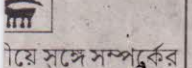 ীয়ে সঙ্গে সম্পর্কের